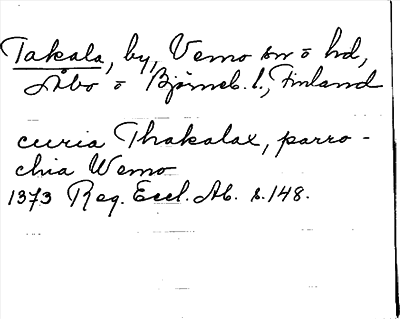 Takala, by, Vemo sn o hd,
Åbo o Björneb. l., Finland
curia Thakalax, parro-
chia Wemo
1373 Reg. Eccl. Ab. s. 148.